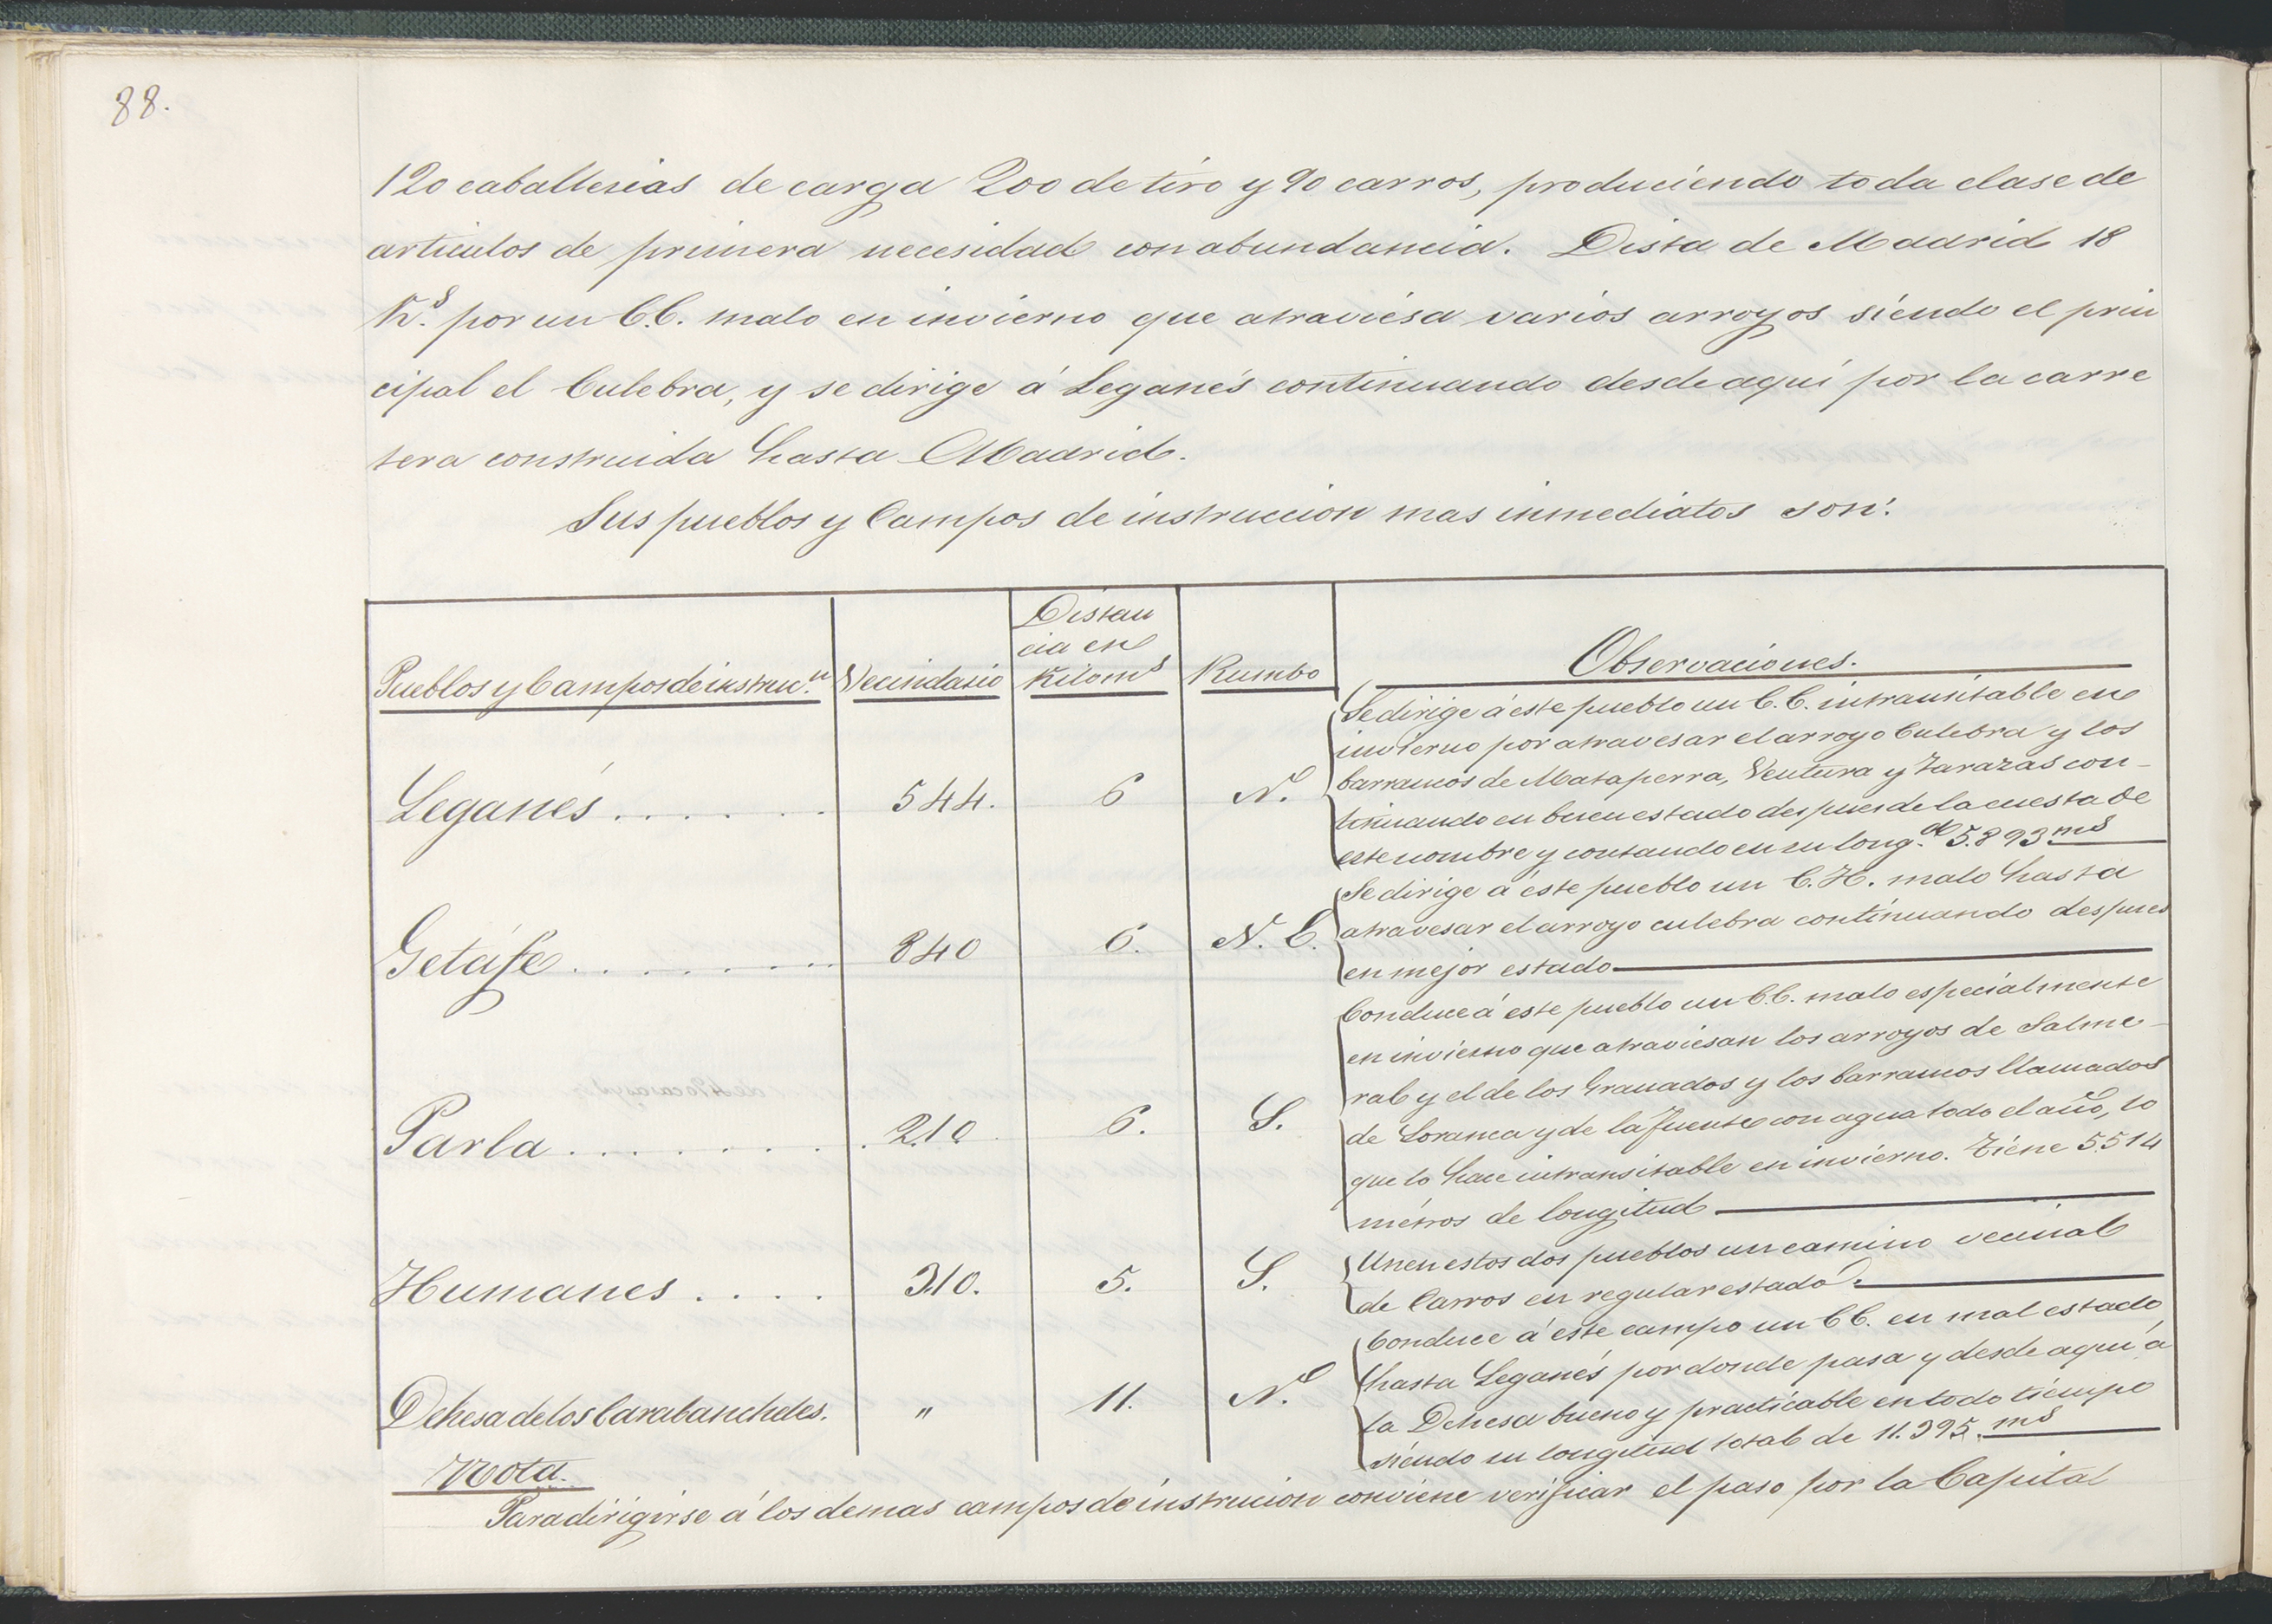 88.
120 caballerias de carga 200 de tiro y 90 carros, produciendo toda clase de
articulos de primera necesidad con abundancia. Dista de Madrid 18
K.s por un C.C. malo en invierno que atraviesa varios arroyos siendo el prin
cipal el Culebra, y se dirige á Leganés continuando desde aquí por la carre
tera construida hasta Madrid.
Sus pueblos y Campos de instruccion mas inmediatos son:
Pueblos y Campos de instruc.n
Vecindario
Distan
cia en
Kiloms
Rumbo
Observaciones.
Leganés . . . . . . 544. 6 N.
Se dirige á este pueblo un C.C. intransitable en
invierno por atravesar el arroyo Culebra y los
barrancos de Mataperra, Ventura y Zarazas con-
tinuando en buen estado despues de la cuesta de
este nombre y contando en su long.d 5.893 ms
Getáfe . . . . . . . 840 6. N. E.
Se dirige á este pueblo un C.H. malo hasta
atravesar el arroyo culebra continuando despues
en mejor estado
Parla . . . . . . . . 210 6. S.
Conduce á este pueblo un C.C. malo especialmente
en invierno que atraviesan los arroyos de Salme-
ral y el de los Granados y los barrancos llamados
de Loranca y de la Fuente con agua todo el año, lo
que lo hace intransitable en invierno. Tiene 5.514
métros de longitud
Humanes . . . . 310. 5. S.
Unen estos dos pueblos un camino vecinal
de Carros en regular estado.
Dehesa de los Carabancheles. " 11. N.
Conduce á este campo un C C. en mal estado
hasta Leganés por donde pasa y desde aqui á
la Dehesa bueno y practicable en todo tiempo
siendo su longitud total de 11.395. ms
Nota.
Para dirigirse á los demas campos de instrucion conviene verificar el paso por la Capital